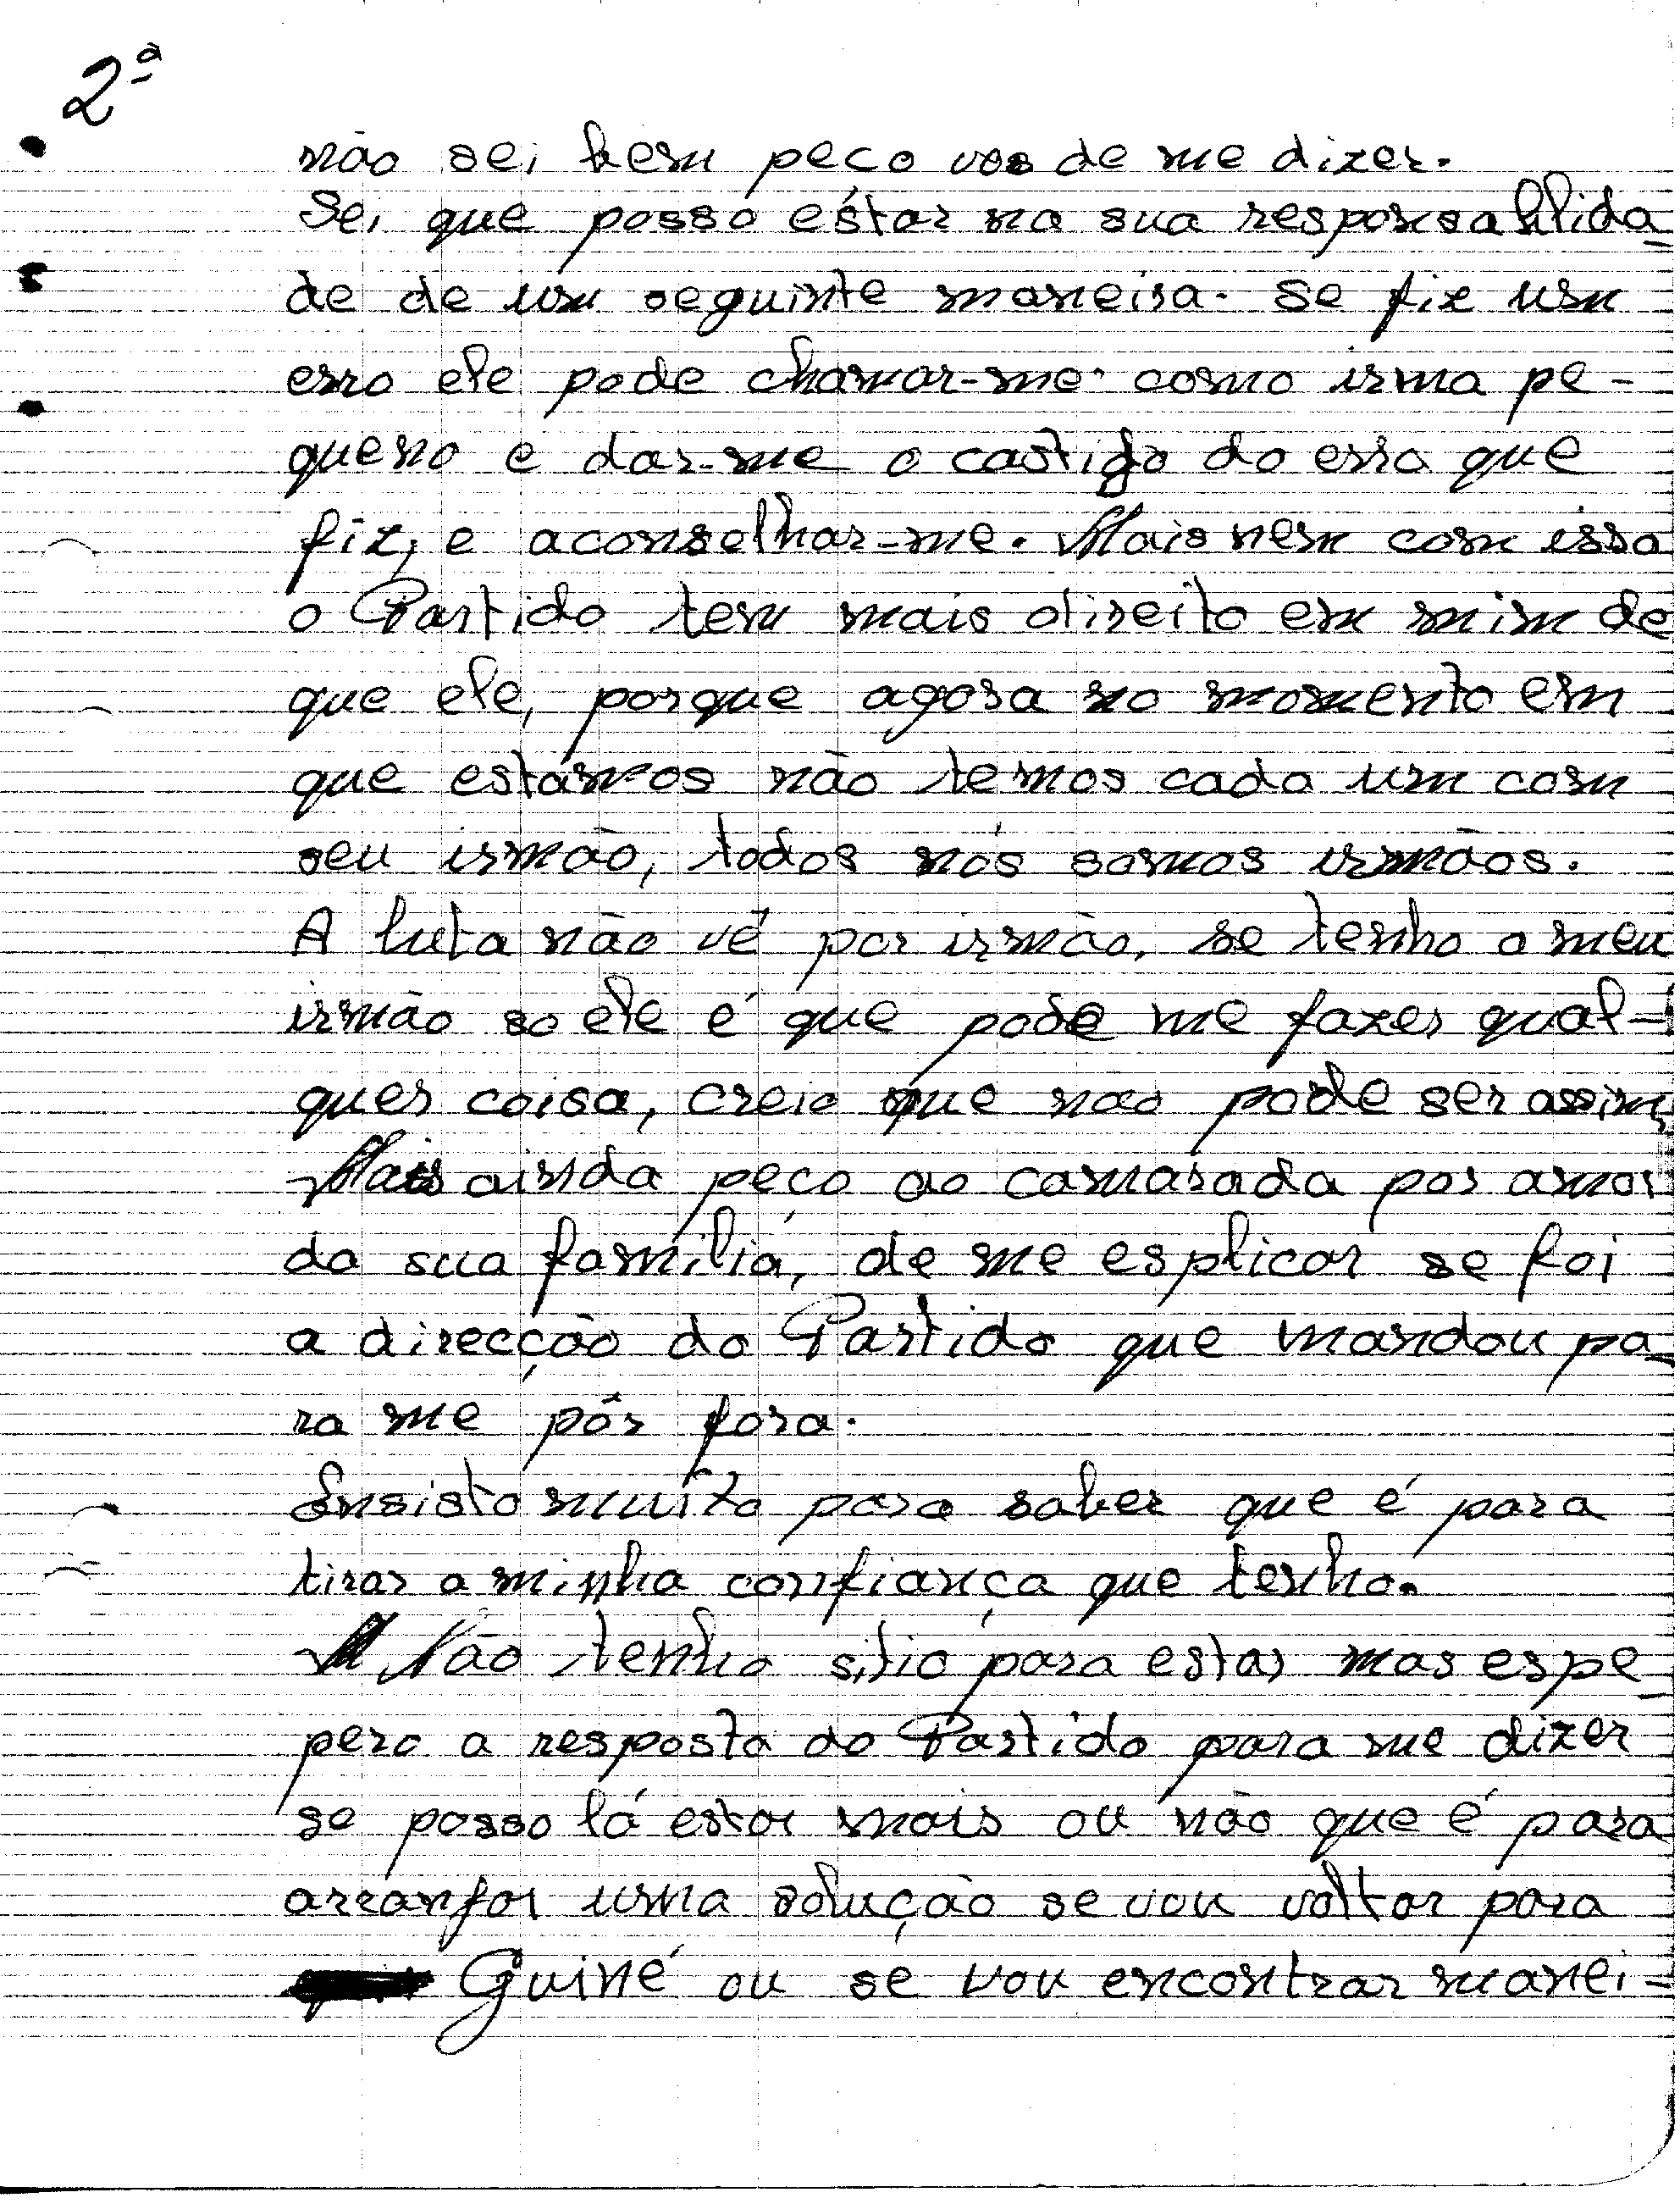 2ª
não sei bem peço vos de me dizer.
Sei que posso estar na sua responsablida_
de de um seguinte maneira. Se fiz um
erro ele pode chamar-me como irma pe-
queno e dar-me o castigo do erro que
fiz, e aconselhar-me. Mais nem com isso
o Partido tem mais direito em mim de
que ele, porque agora no momento em
que estámos não temos cada um com
seu irmão, todos nós somos irmãos.
A luta não vê por irmão, se tenho o meu
irmão so ele é que pode me fazer qual-
quer coisa, creio que nao pode ser assim,
Mais ainda peço ao camarada por amor
da sua família, de me esplicar se foi
a direcção do Partido que mandou pa_
ra me pôr fora.
Insisto muito para saber que é para
tirar a minha confiança que tenho.
Não tenho sitio para estar mas espe_
pero a resposta do Partido para me dizer
se posso lá estar mais ou não que é para
arranjar uma solução se vou voltar para
Guiné ou se vou encontrar manei-